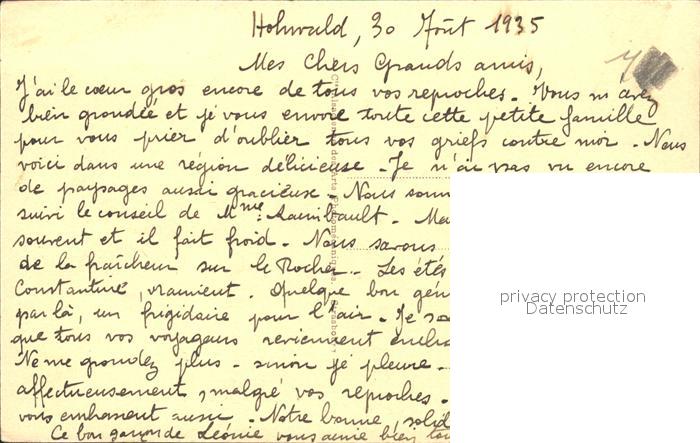 Hohwald, 30 Août 1935
Mes Chers Grands amis,
J'ai le cœur gros encore de tous vos reproches. Vous m'avez
bien grondée et je vous envoie toute cette petite famille
pour vous prier d'oublier tous vos griefs contre moi. Nous
voici dans une région délicieuse. Je n'ai pas vu encore
de paysages aussi gracieux. Nous
suivi le conseil de Mme Rambault.
souvent et il fait froid. Nous savons
de la fraîcheur sur le Rocher. Les étés
vraiment. Quelque bon
par là, un frigidaire pour l'air. Je
que tous vos voyageurs reviennent
Ne me grondez plus. sinon je pleure.
affectueusement, malgré vos reproches.
vous embrassent aussi. Notre bonne,
Ce bon garçon de Léonie vous aime bien
privacy protection
Datenschutz